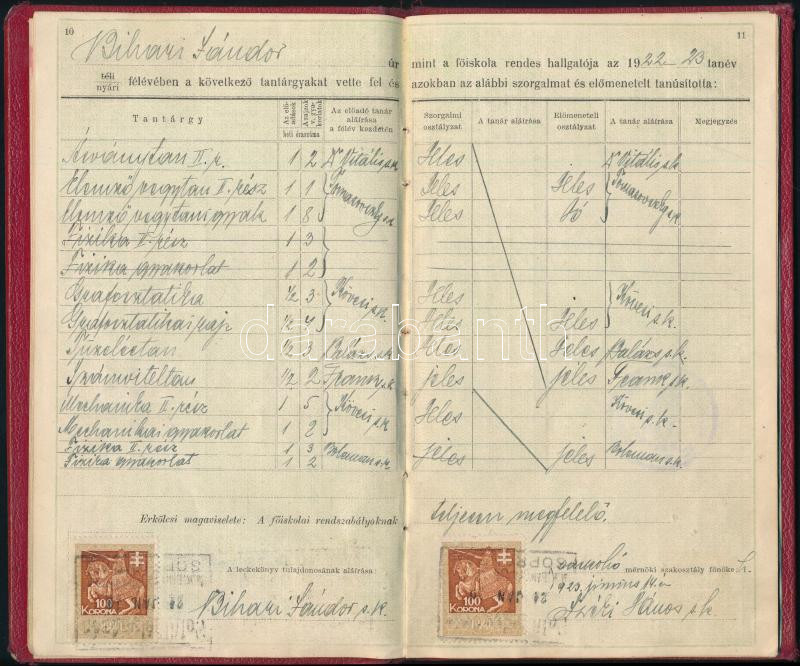 10
Bihari Sándor úr
téli
nyári félévében a következő tantárgyakat vette fel és
Tantárgy
Az elő-
adások
A rajzok
v. gya-
korlatok
heti óraszáma
Az előadó tanár
aláírása
a félév kezdetén
Ásványtan II. r. 1 2 Dr Vitális s.k.
Elemző vegytan II. rész 1 1
Elemző vegytani gyak 1 8
Fizika II. rész 1 3
Fizika gyakorlat 1 2
Grafosztatika 1/2 3 Kövesi s.k.
Grafosztatikai gyak 1/2 4
Tüzeléstan 1/2 3 Balázs s.k.
Számviteltan 1/2 2
Mechanika II. rész 1 5 Kövesi s.k.
Mechanikai gyakorlat 1 2
Fizika II. rész 1 3 Boleman s.k.
Fizika gyakorlat 1 2
Erkölcsi magaviselete: A főiskolai rendszabályoknak
A leckekönyv tulajdonosának aláírása:
Bihari Sándor s.k.
100
KORONA
11
mint a főiskola rendes hallgatója az 1922-23 tanév
azokban az alábbi szorgalmat és előmenetelt tanúsította:
Szorgalmi
osztályzat
A tanár aláírása
Előmeneteli
osztályzat
A tanár aláírása
Megjegyzés
Jeles Dr Vitális s.k.
Jeles Jeles
Jeles Jó
Jeles Kövesi s.k.
Jeles Jeles
Jeles Jeles Balázs s.k.
jeles jeles
Jeles Kövesi s.k.
jeles jeles Boleman s.k.
teljesen megfelelő.
mérnöki szakosztály főnöke
1923 június
János s.k.
100
KORONA
darabanth